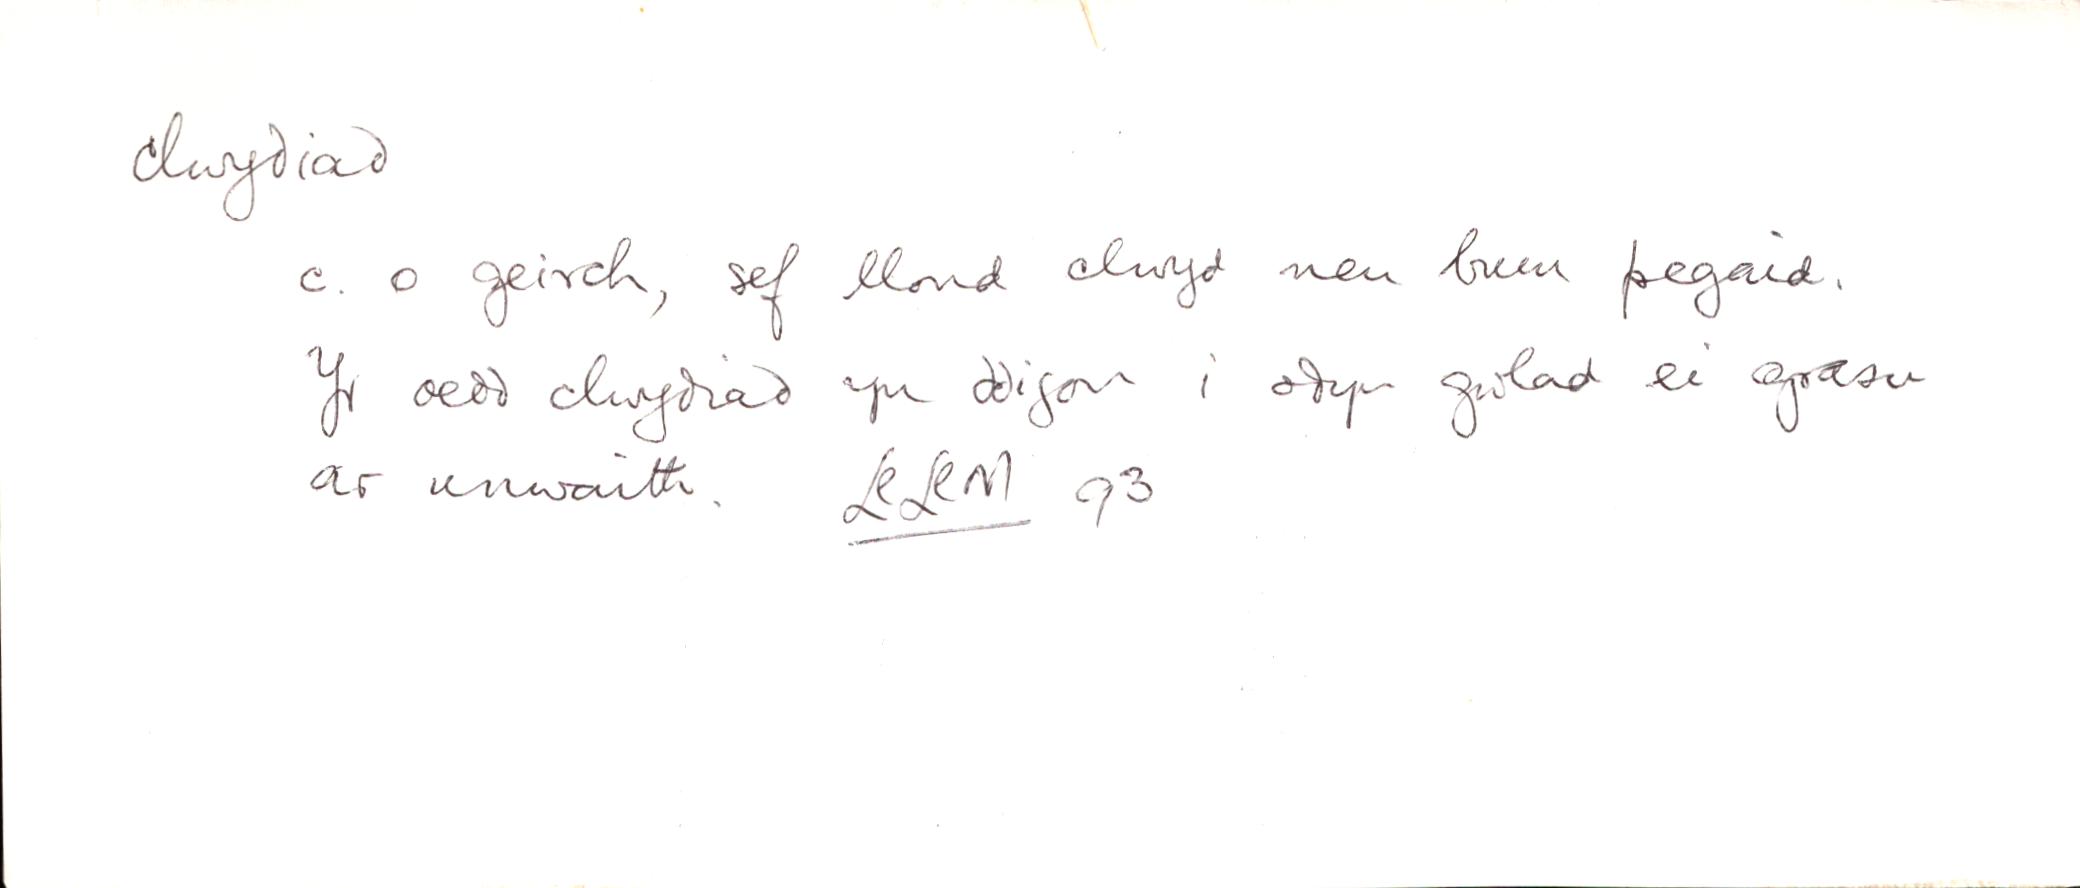 clwydiad
c. o geirch, sef llond clwyd neu bum pegaid.
Yr oedd clwydiad yn ddigon i odyn gwlad ei grasu
ar unwaith. LlLlM 93